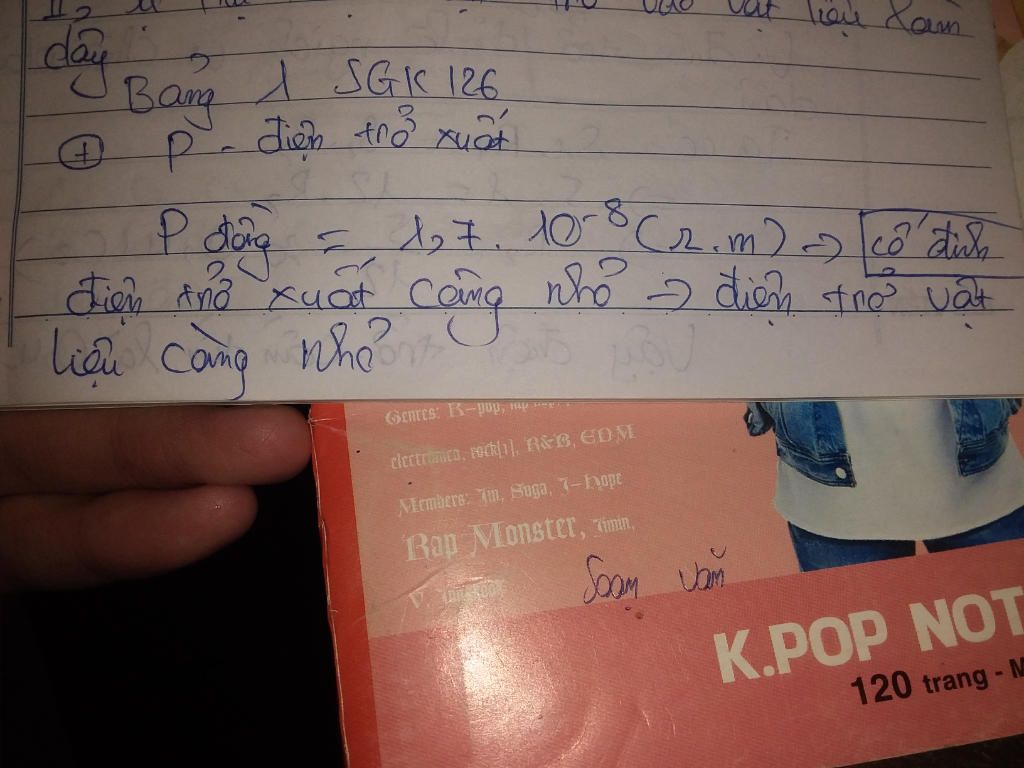 vào vật liệu làm
dây
Bảng 1 SGK 126
+ P - điện trở xuất
P đồng = 1,7. 10⁻⁸ (Ω.m) → cố định
điện trở xuất càng nhỏ → điện trở vật
liệu càng nhỏ
Genres: K-pop,
electronica, rock[1], R&B, EDM
Members: Jin, Suga, J-Hope
Rap Monster, Jimin,
V,
Soạn văn
K.POP NOT
120 trang - M